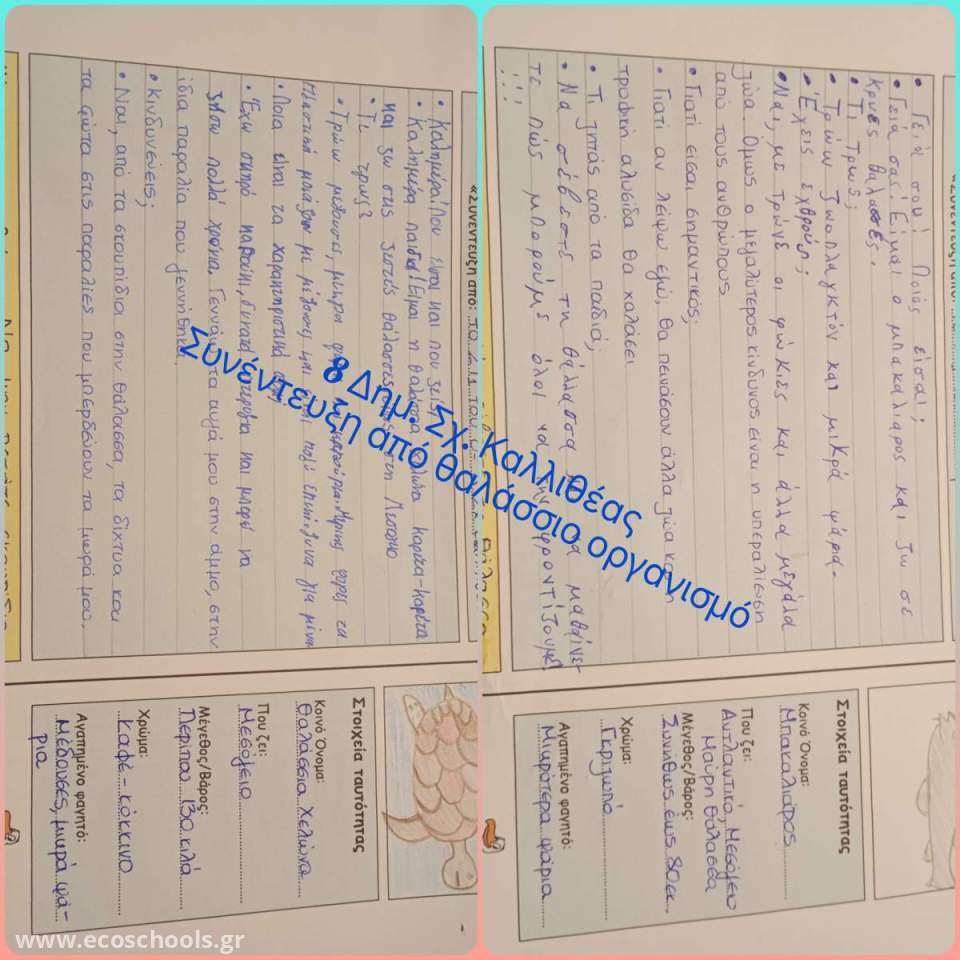 «Συνέντευξη από:
• Καλημέρα! Που είσαι και που ζεις;
• Καλημέρα παιδιά! Είμαι η θαλάσσια χελώνα καρέτα-καρέτα
και ζω στις ζεστές θάλασσες
• Τι τρως;
• Τρώω μέδουσες, μικρά
πλαστικά μοιάζουν με μέδουσες και είναι πολύ επικίνδυνα για μένα
• Ποια είναι τα χαρακτηριστικά
• Έχω σκηρό καβούκι, δυνατά πτερύγια και μπορώ να
ζήσω πολλά χρόνια. Γεννάω τα αυγά μου στην άμμο, στην
ίδια παραλία που γεννήθηκα.
• Κινδυνεύεις;
• Ναι, από τα σκουπίδια στην θάλασσα, τα δίχτυα και
τα φώτα στις παραλίες που μπερδεύουν τα μωρά μου.
Στοιχεία ταυτότητας
Κοινό Όνομα:
Θαλάσσια Χελώνα
Που ζει:
Μεσόγειο
Μέγεθος/Βάρος:
Περίπου 130 κιλά
Χρώμα:
Καφέ-κόκκινο
Αγαπημένο φαγητό:
Μέδουσες, μικρά ψά-
ρια
«Συνέντευξη από:
• Γειά σου! Ποιός είσαι;
• Γειά σας! Είμαι ο μπακαλιάρος και ζω σε
κρύες θάλασσες.
• Τι Τρως;
• Τρώω ζωπλαγκτόν και μικρά ψάρια.
• Έχεις εχθρούς;
• Ναι, με τρώνε οι φώκιες και άλλα μεγάλα
ζώα. Όμως ο μεγαλύτερος κίνδυνος είναι η υπεραλίευση
από τους ανθρώπους
• Γιατί είσαι σημαντικός;
• Γιατί αν λείψω εγώ, θα πεινάσουν άλλα ζώα και
τροφική αλυσίδα θα χαλάσει
• Τι ζητάς από τα παιδιά;
• Να σέβεστε τη θάλασσα να μαθαίνε-
τε πώς μπορούμε όλοι να την φροντίζουμε!
!!!
Στοιχεία ταυτότητας
Κοινό Όνομα:
Μπακαλιάρος
Που ζει:
Ατλαντικό, Μεσόγειο
Μαύρη Θάλασσα
Μέγεθος/Βάρος:
Συνήθως έως 80εκ.
Χρώμα:
Γκριζωπό
Αγαπημένο φαγητό:
Μικρότερα ψάρια
8 Δημ. Σχ. Καλλιθέας
Συνέντευξη από θαλάσσιο οργανισμό
www.ecoschools.gr